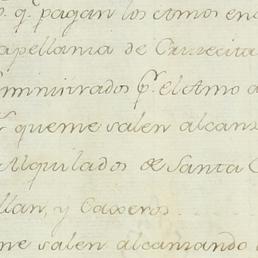 p. q.e pagan los Amos en
Capellania de Cruzecita
suministrados p.r el Amo a
q.e me salen alcanz
Alquilados de Santa C
llan, y Caxeros
me salen alcanzando